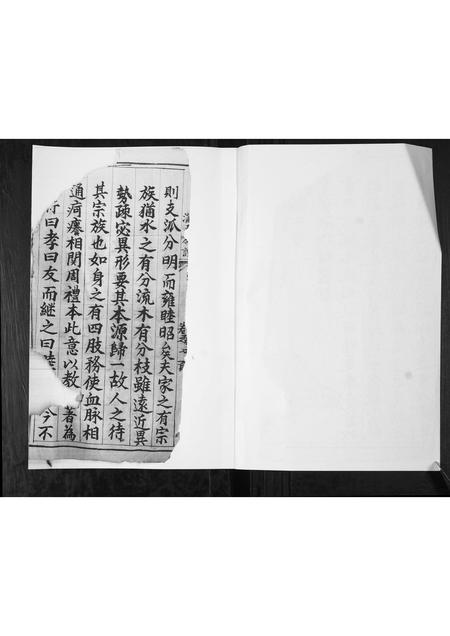 則支派分明而雍睦昭矣夫家之有宗
族猶水之有分流木有分枝雖遠近異
勢疎宻異形要其本源歸一故人之待
其宗族也如身之有四肢務使血脉相
通疴癢相関周禮本此意以教 著為
行曰孝曰友而継之曰睦 今不